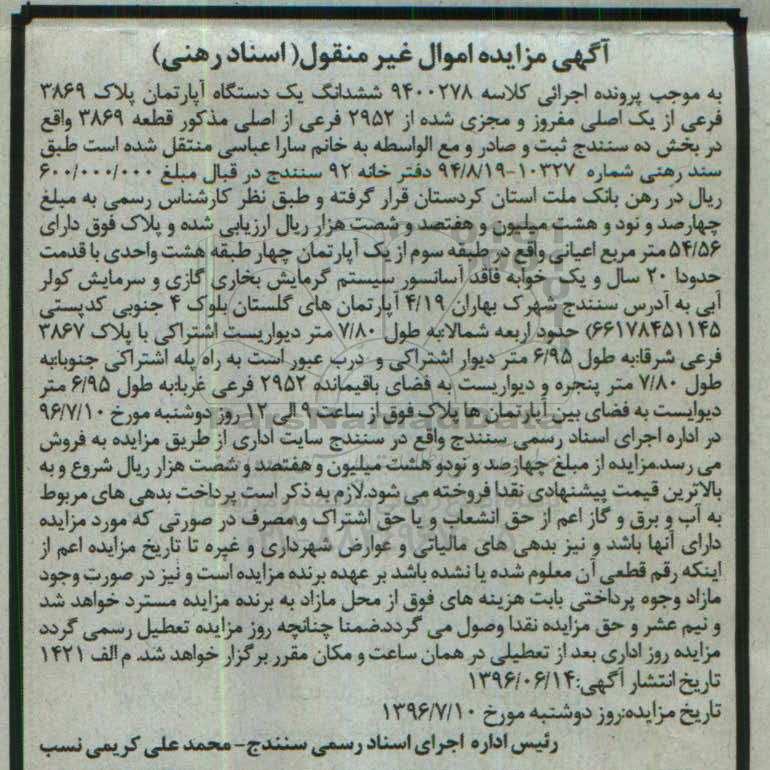 آگهی مزایده اموال غیر منقول( اسناد رهنی)
به موجب پرونده اجرائی کلاسه ۹۴۰۰۲۷۸ ششدانگ یک دستگاه آپارتمان پلاک ۳۸۶۹
فرعی از یک اصلی مفروز و مجزی شده از ۲۹۵۲ فرعی از اصلی مذکور قطعه ۳۸۶۹ واقع
در بخش ده سنندج ثبت و صادر و مع الواسطه به خانم سارا عباسی منتقل شده است طبق
سند رهنی شماره ۱۰۳۲۷-۹۴/۸/۱۹ دفتر خانه ۹۲ سنندج در قبال مبلغ ۶۰۰/۰۰۰/۰۰۰
ریال در رهن بانک ملت استان کردستان قرار گرفته و طبق نظر کارشناس رسمی به مبلغ
چهارصد و نود و هشت میلیون و هفتصد و شصت هزار ریال ارزیابی شده و پلاک فوق دارای
۵۴/۵۶ متر مربع اعیانی واقع در طبقه سوم از یک آپارتمان چهار طبقه هشت واحدی با قدمت
حدودا ۲۰ سال و یک خوابه فاقد آسانسور سیستم گرمایش بخاری گازی و سرمایش کولر
آبی به آدرس سنندج شهرک بهاران ۴/۱۹ آپارتمان های گلستان بلوک ۴ جنوبی کدپستی
۶۶۱۷۸۴۵۱۱۴۵) حدود اربعه شمالا:به طول ۷/۸۰ متر دیواریست اشتراکی با پلاک ۳۸۶۷
فرعی شرقا:به طول ۶/۹۵ متر دیوار اشتراکی و درب عبور است به راه پله اشتراکی جنوبا:به
طول ۷/۸۰ متر پنجره و دیواریست به فضای باقیمانده ۲۹۵۲ فرعی غربا:به طول ۶/۹۵ متر
دیوایست به فضای بین آپارتمان ها پلاک فوق از ساعت ۹ الی ۱۲ روز دوشنبه مورخ ۹۶/۷/۱۰
در اداره اجرای اسناد رسمی سنندج واقع در سنندج سایت اداری از طریق مزایده به فروش
می رسد.مزایده از مبلغ چهارصد و نودو هشت میلیون و هفتصد و شصت هزار ریال شروع و به
بالاترین قیمت پیشنهادی نقدا فروخته می شود.لازم به ذکر است پرداخت بدهی های مربوط
به آب و برق و گاز اعم از حق انشعاب و یا حق اشتراک و مصرف در صورتی که مورد مزایده
دارای آنها باشد و نیز بدهی های مالیاتی و عوارض شهرداری و غیره تا تاریخ مزایده اعم از
اینکه رقم قطعی آن معلوم شده یا نشده باشد بر عهده برنده مزایده است و نیز در صورت وجود
مازاد وجوه پرداختی بابت هزینه های فوق از محل مازاد به برنده مزایده مسترد خواهد شد
و نیم عشر و حق مزایده نقدا وصول می گردد.ضمنا چنانچه روز مزایده تعطیل رسمی گردد
مزایده روز اداری بعد از تعطیلی در همان ساعت و مکان مقرر برگزار خواهد شد. م الف ۱۴۲۱
تاریخ انتشار آگهی:۱۳۹۶/۰۶/۱۴
تاریخ مزایده:روز دوشنبه مورخ ۱۳۹۶/۷/۱۰
رئیس اداره اجرای اسناد رسمی سنندج-محمد علی کریمی نسب
ParsNamadData